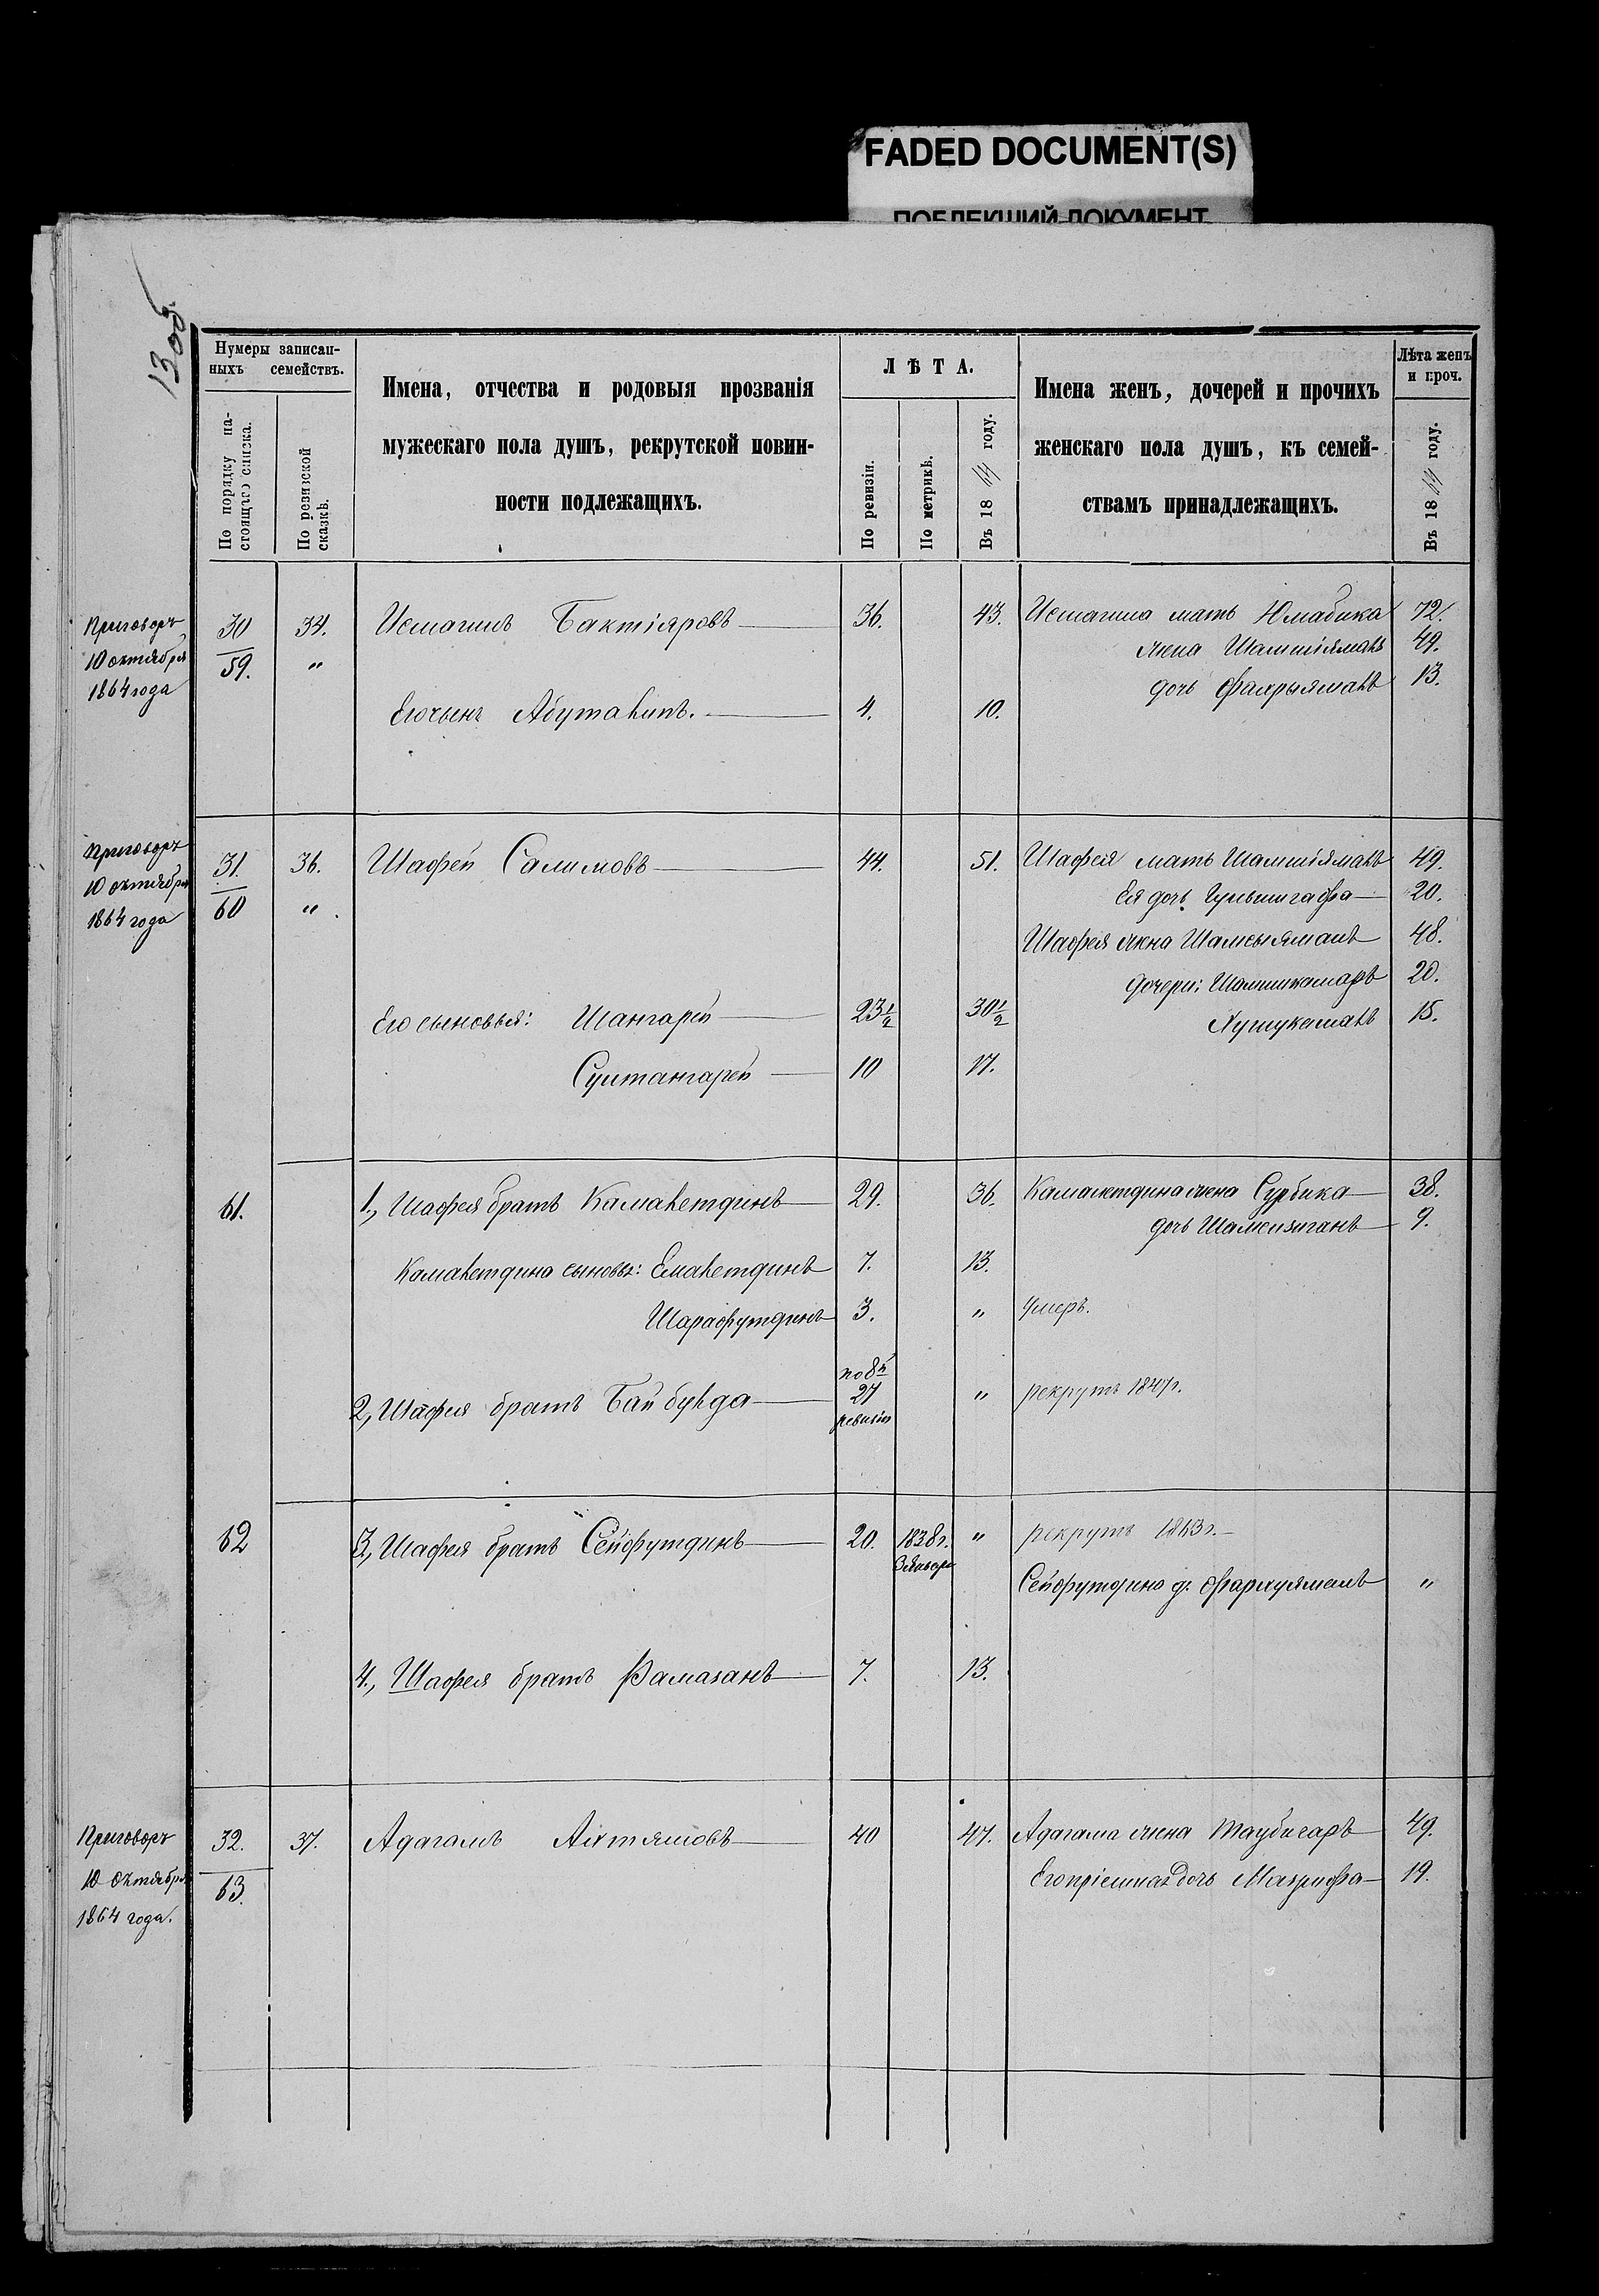 FADED DOCUMENT(S)
ПОБЛЕКШИЙ ДОКУМЕНТ
13 об.
Нумеры записан-
ныхъ семействъ.
По порядку на-
стоящаго списка.
По ревизской
сказкѣ.
Имена, отчества и родовыя прозванія
мужескаго пола душъ, рекрутской повин-
ности подлежащихъ.
ЛѢТА.
По ревизіи.
По метрикѣ.
Въ 18 году.
Имена женъ, дочерей и прочихъ
женскаго пола душъ, къ семей-
ствамъ принадлежащихъ.
Лѣта женъ
и проч.
Въ 18 году.
Приговоръ
10 октября
1864 года
30 34. Исмагилъ Бактіяровъ 36. 43. Исмагила мать Юмабика 72.
59. " жена Шамшіямалъ 49.
дочь Фахрыямалъ 13.
Его сынъ Абуталипъ. 4. 10.
Приговоръ
10 октября
1864 года
31. 36. Шафей Салимовъ 44. 51. Шафея мать Шамшіямалъ 49.
60 " Ея дочь Гульшигафа 20.
Шафея жена Шамсыямалъ 48.
дочери: Шамшикамаръ 20.
Его сыновья: Шангарей 23½ 30½
15.
Султангарей 10 17.
61. 1., Шафея братъ Камалетдинъ 29. 36. Камалетдина жена Сурбика 38.
дочь Шамсизиганъ 9.
Камалетдина сыновья: Емалетдинъ 7. 13.
Шарафутдинъ 3. " умеръ.
2, Шафея братъ Байбулда по 8й 27 ревизіи " рекрутъ 1847г.
62 3, Шафея братъ Сейфутдинъ 20. 1838г. 3 Января " рекрутъ 1863г.
Сейфутдина д: Фархуямалъ "
4., Шафея братъ Рамазанъ 7. 13.
Приговоръ
10 Октября
1864 года.
32. 37. Адагамъ Ахтямовъ 40 47. Адагама жена Таубисаръ 49.
63. Его пріемная дочь Магрифа 19.